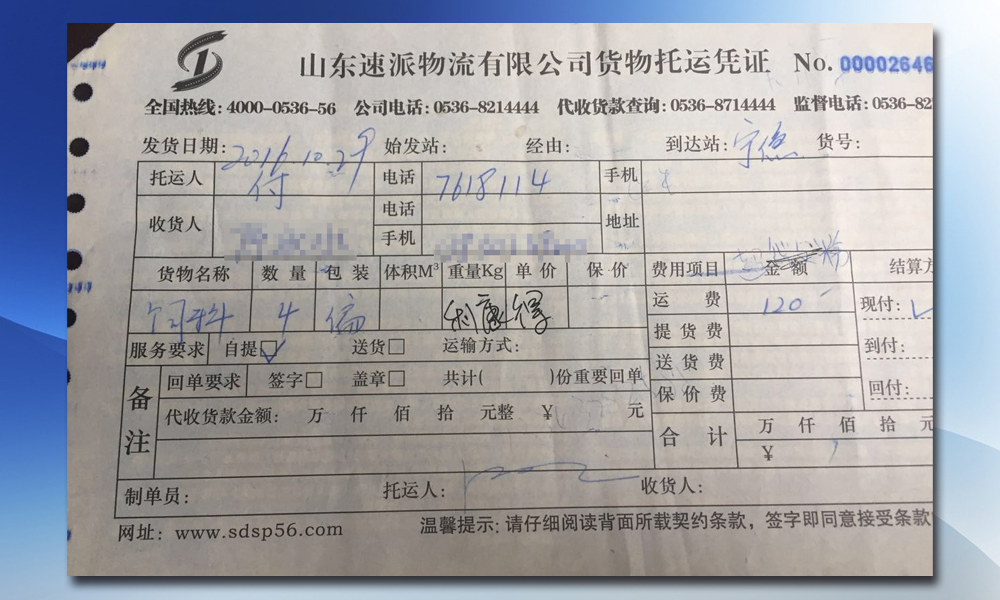 山东速派物流有限公司货物托运凭证 No. 00002646
全国热线: 4000-0536-56 公司电话: 0536-8214444 代收货款查询: 0536-8714444 监督电话: 0536-82
发货日期: 2016.10.29 始发站: 经由: 到达站: 货号:
托运人 付 电话 7618114 手机
收货人 电话 地址
手机
货物名称 数量 包装 体积M³ 重量Kg 单价 保价 费用项目 金额 结算方
饲料 4 运费 120 现付:
提货费
服务要求 自提☑ 送货□ 运输方式: 送货费 到付:
备注 回单要求 签字□ 盖章□ 共计( )份重要回单 保价费 回付:
代收货款金额: 万 仟 佰 拾 元整 ¥ 元 合计 万 仟 佰 拾 元
¥
制单员: 托运人: 收货人:
网址: www.sdsp56.com 温馨提示: 请仔细阅读背面所载契约条款，签字即同意接受条款